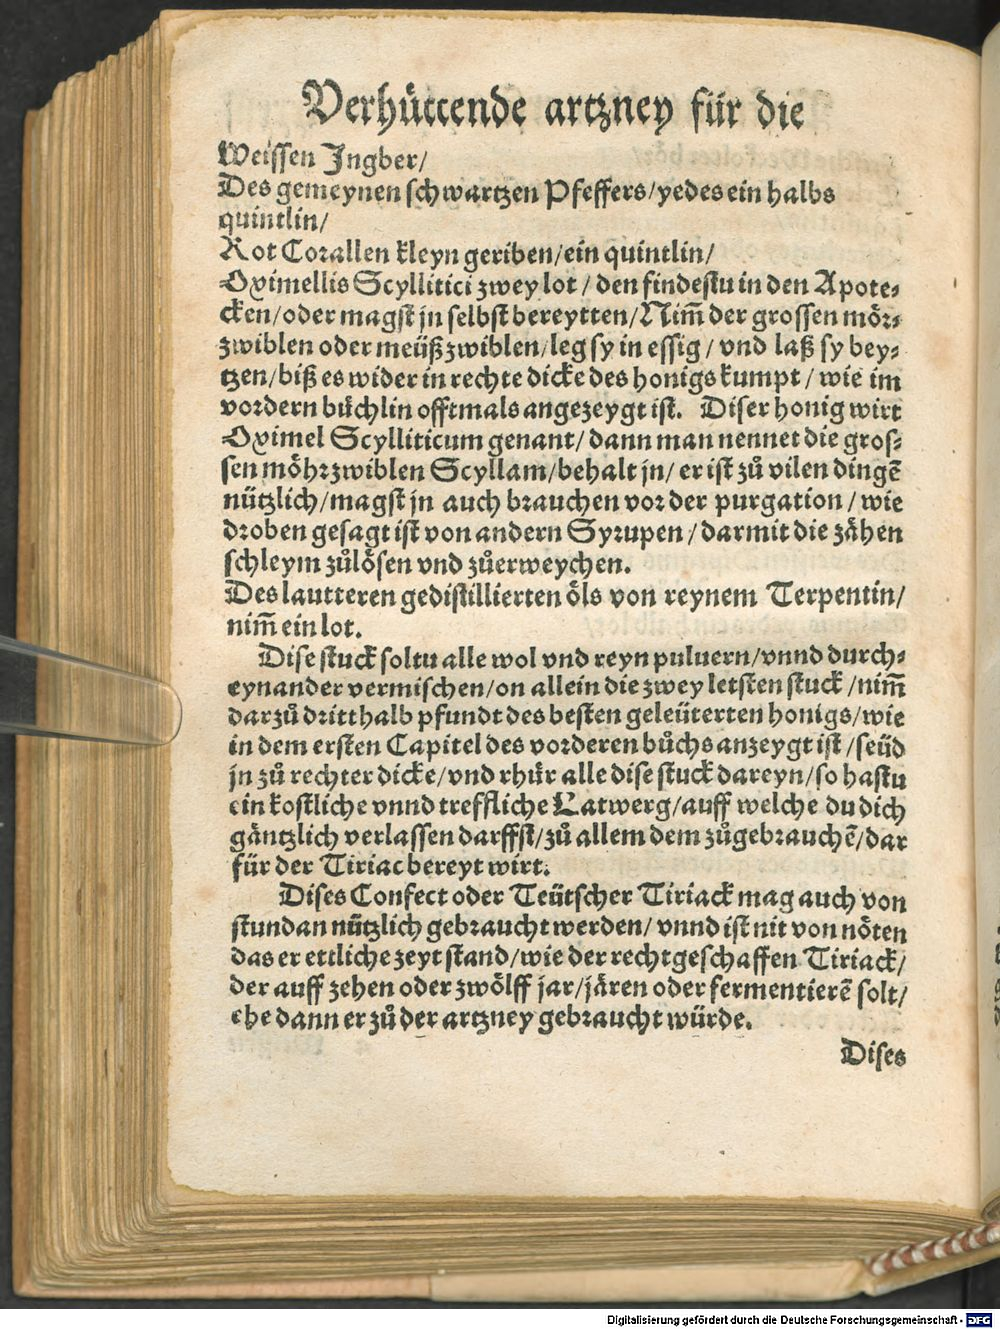 Verhüttende artzney für die
Weissen Jngber/
Des gemeynen schwartzen Pfeffers/yedes ein halbs
quintlin/
Rot Corallen kleyn geriben/ein quintlin/
Oximellis Scyllitici zwey lot / den findestu in den Apote⸗
cken/oder magst jn selbst bereytten/Nim̄ der grossen mör⸗
zwiblen oder meüßzwiblen/leg sy in essig / vnd laß sy bey⸗
tzen/biß es wider in rechte dicke des honigs kumpt / wie im
vordern bůchlin offtmals angezeygt ist. Diser honig wirt
Oximel Scylliticum genant/ dann man nennet die gros⸗
sen möhrzwiblen Scyllam/behalt jn/ er ist zů vilen dingē
nützlich/magst jn auch brauchen vor der purgation / wie
droben gesagt ist von andern Syrupen / darmit die zähen
schleym zůlösen vnd zůerweychen.
Des lautteren gedistillierten öls von reynem Terpentin/
nim̄ ein lot.
Dise stuck soltu alle wol vnd reyn puluern/vnnd durch⸗
eynander vermischen/on allein die zwey letsten stuck /nim̄
darzů dritthalb pfundt des besten geleüterten honigs/wie
in dem ersten Capitel des vorderen bůchs anzeygt ist /seüd
jn zů rechter dicke/vnd rhür alle dise stuck dareyn/so hastu
ein kostliche vnnd treffliche Latwerg/auff welche du dich
gäntzlich verlassen darffst/zů allem dem zůgebrauchē/dar
für der Tiriac bereyt wirt.
Dises Confect oder Teütscher Tiriack mag auch von
stundan nützlich gebraucht werden/ vnnd ist nit von nöten
das er ettliche zeyt stand/wie der rechtgeschaffen Tiriack/
der auff zehen oder zwölff jar/jären oder fermentierē solt/
ehe dann er zů der artzney gebraucht würde.
Dises
Digitalisierung gefördert durch die Deutsche Forschungsgemeinschaft - DFG